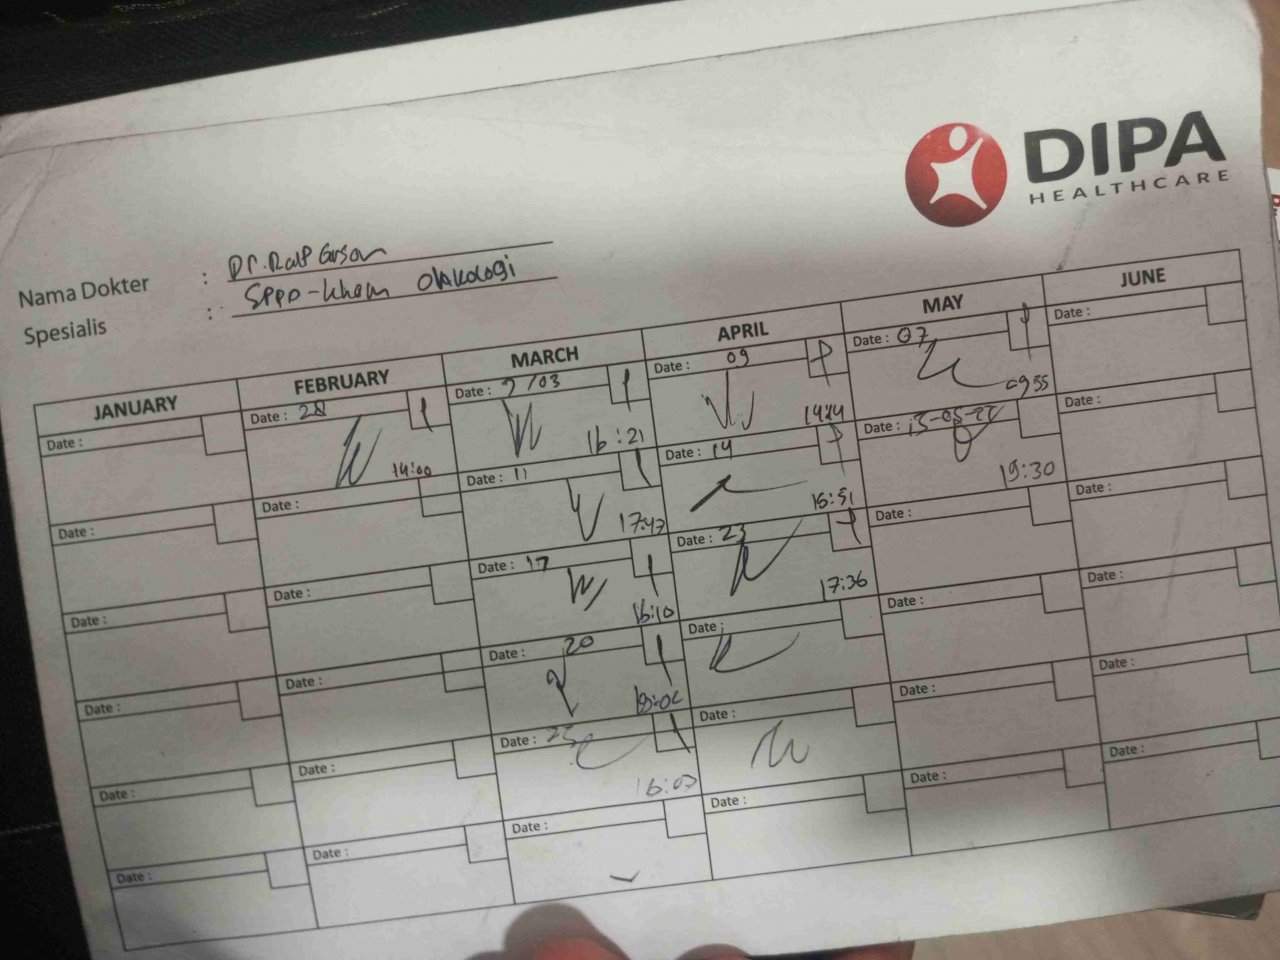 DIPA
HEALTHCARE
Nama Dokter : Dr.
Spesialis : SPPD-Khom
JANUARY FEBRUARY MARCH APRIL MAY JUNE
Date : Date : 28 Date : 7/03 Date : 09 Date : 07 Date :
14:00 16:21 14:24 09:55
Date : Date : Date : 11 Date : 14 Date : Date :
17:47 19:30
Date : Date : Date : 17 Date : 23 Date : Date :
16:10 17:36
Date : Date : Date : 20 Date : Date : Date :
Date : Date : Date : 25 Date : Date : Date :
16:03
Date : Date : Date : Date : Date : Date :